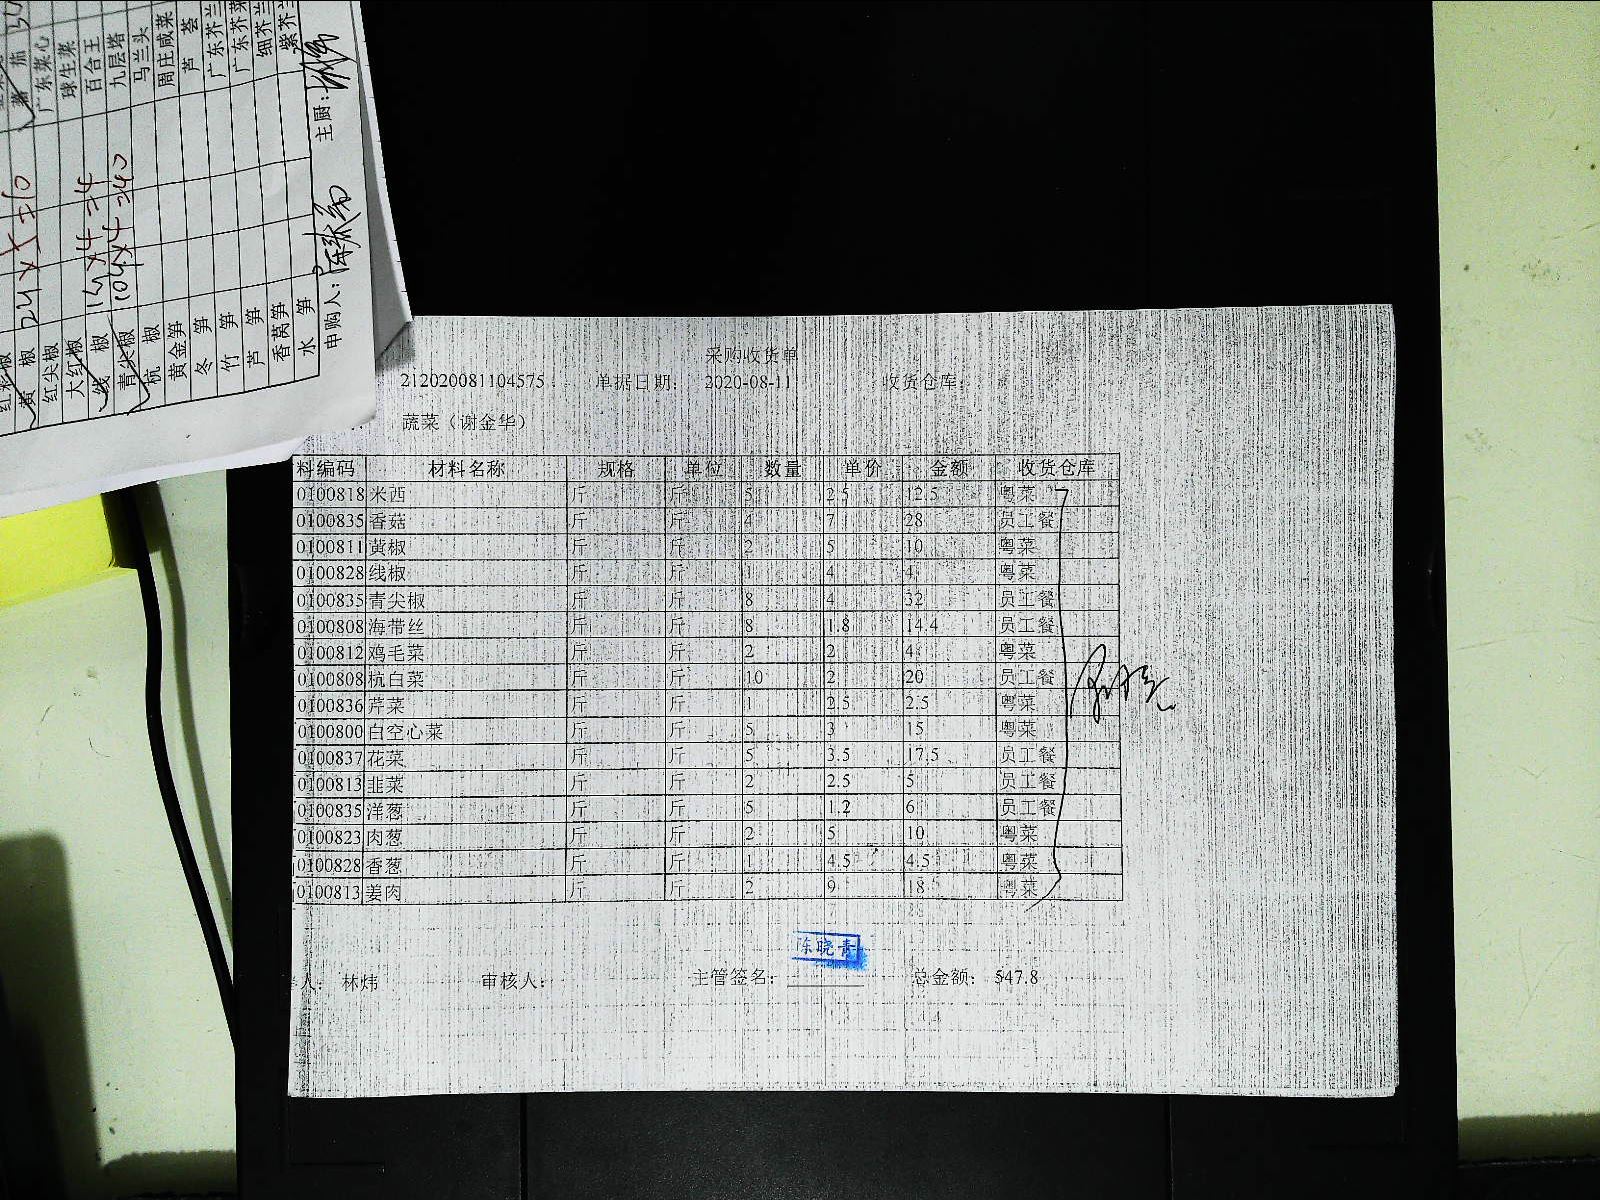 蕃 茄
广东菜心
球生菜
百合王
九层塔
马兰头
周庄咸菜
芦 荟
广东芥兰
广东芥菜
细芥兰
紫芥兰
黄 椒 2斤×5=10
红尖椒
大红椒
线 椒 1斤×4=4
青尖椒 10斤×4=40
杭 椒
黄金笋
冬 笋
竹 笋
芦 笋
香莴笋
水 笋
申购人： 主厨：
采购收货单
212020081104575 单据日期： 2020-08-11 收货仓库
蔬菜（谢金华）
料编码 材料名称 规格 单位 数量 单价 金额 收货仓库
0100818 米西 斤 斤 5 2.5 12.5 粤菜
0100835 香菇 斤 斤 4 7 28 员工餐
0100811 黄椒 斤 斤 2 5 10 粤菜
0100828 线椒 斤 斤 1 4 4 粤菜
0100835 青尖椒 斤 斤 8 4 32 员工餐
0100808 海带丝 斤 斤 8 1.8 14.4 员工餐
0100812 鸡毛菜 斤 斤 2 2 4 粤菜
0100808 杭白菜 斤 斤 10 2 20 员工餐
0100836 芹菜 斤 斤 1 2.5 2.5 粤菜
0100800 白空心菜 斤 斤 5 3 15 粤菜
0100837 花菜 斤 斤 5 3.5 17.5 员工餐
0100813 韭菜 斤 斤 2 2.5 5 员工餐
0100835 洋葱 斤 斤 5 1.2 6 员工餐
0100823 肉葱 斤 斤 2 5 10 粤菜
0100828 香葱 斤 斤 1 4.5 4.5 粤菜
0100813 姜肉 斤 斤 2 9 18 粤菜
陈晓青
人： 林炜 审核人： 主管签名： 总金额： 547.8